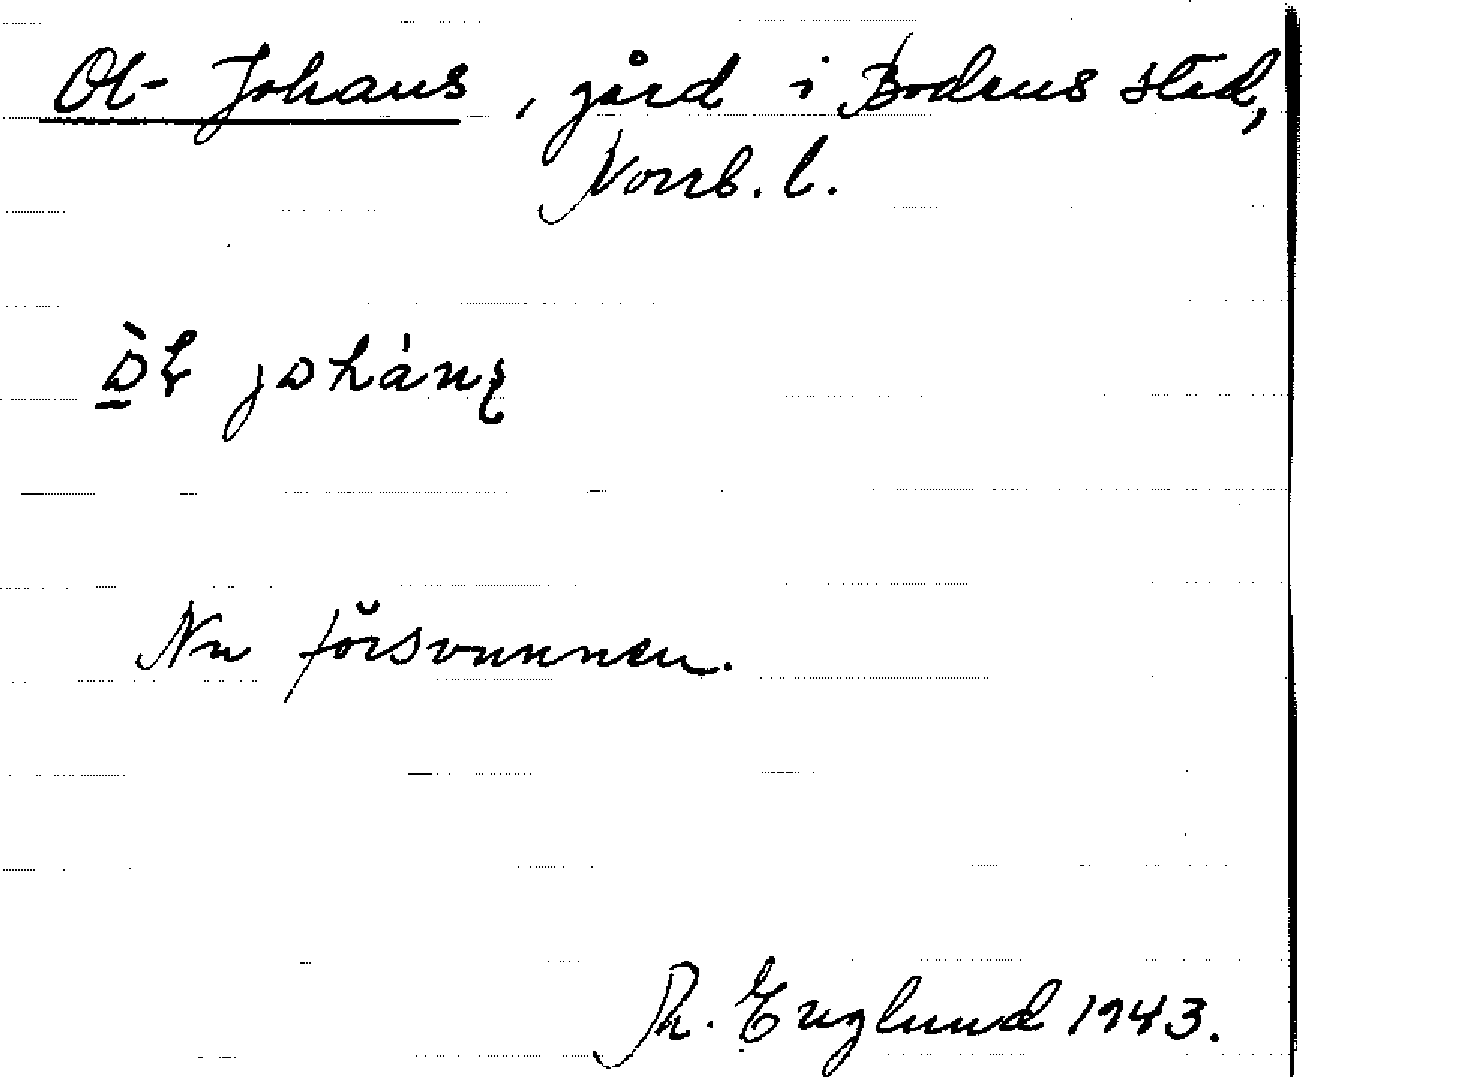 Ol-Johans, gård i Bodens stad,
Norrb. l.
Nu försvunnen.
R. Englund 1943.